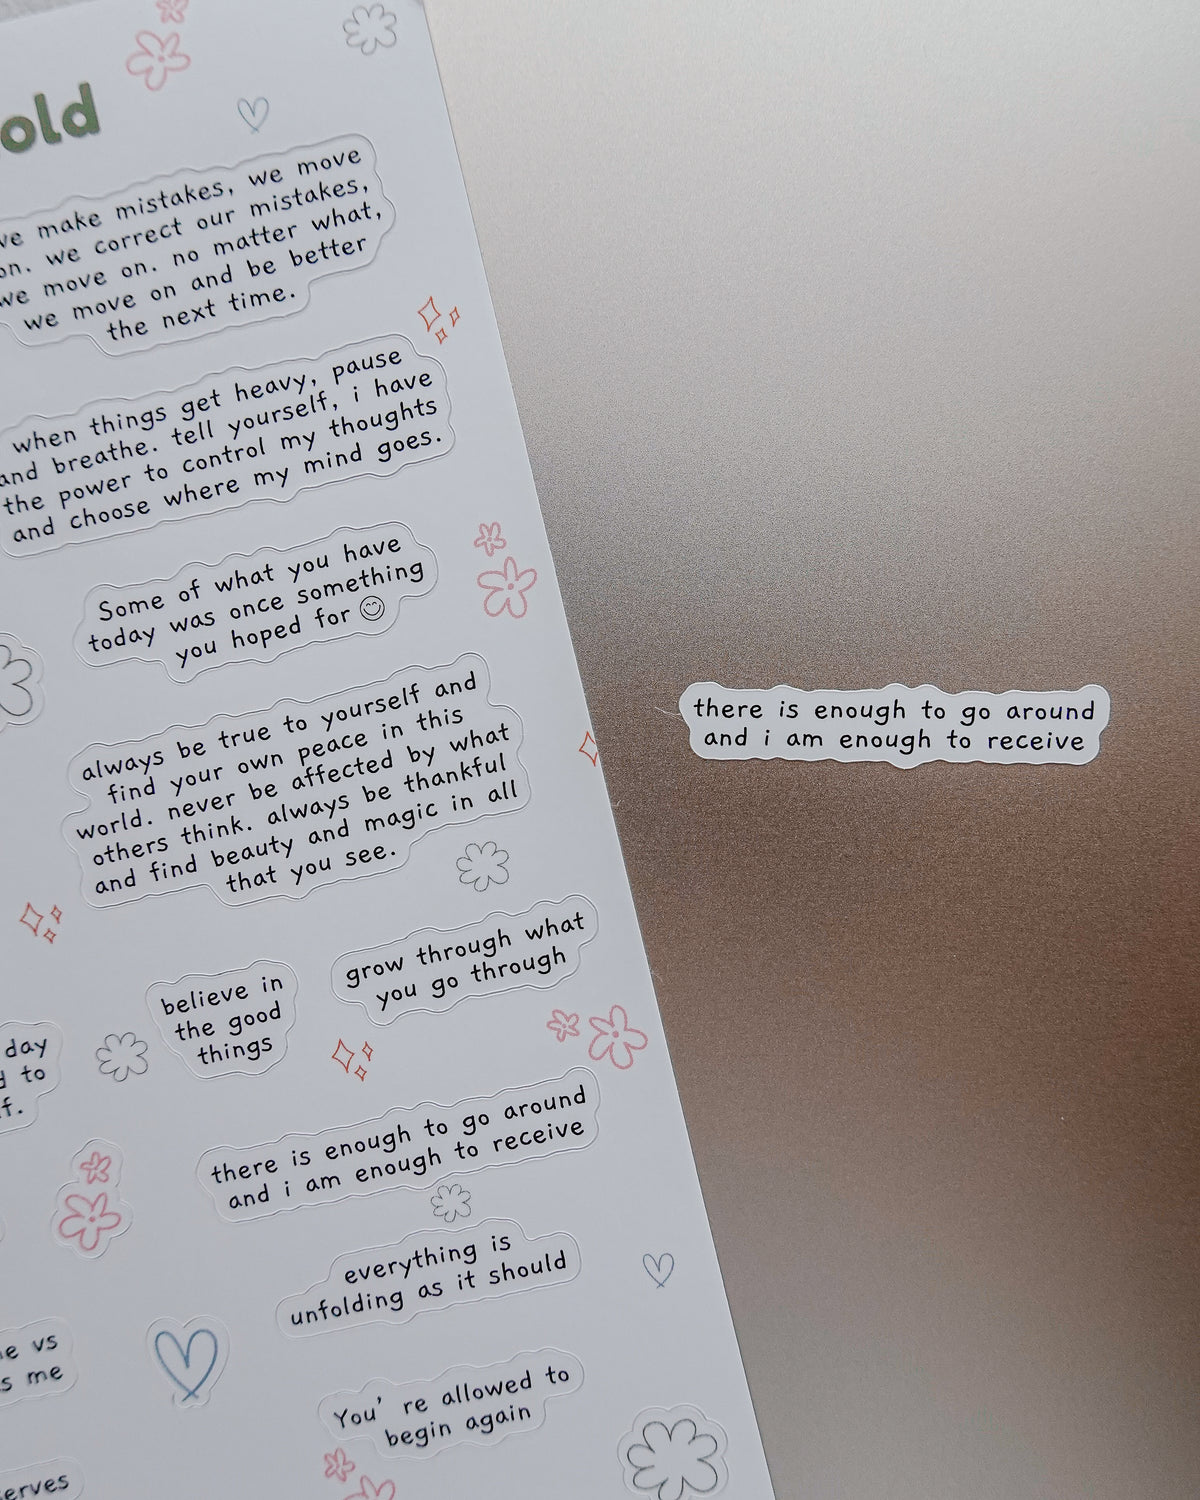 old
we make mistakes, we move
on. we correct our mistakes,
we move on. no matter what,
we move on and be better
the next time.
when things get heavy, pause
and breathe. tell yourself, i have
the power to control my thoughts
and choose where my mind goes.
Some of what you have
today was once something
you hoped for
always be true to yourself and
find your own peace in this
world. never be affected by what
others think. always be thankful
and find beauty and magic in all
that you see.
grow through what
you go through
believe in
the good
things
day
to
f.
there is enough to go around
and i am enough to receive
everything is
unfolding as it should
e vs
s me
You' re allowed to
begin again
erves
there is enough to go around
and i am enough to receive